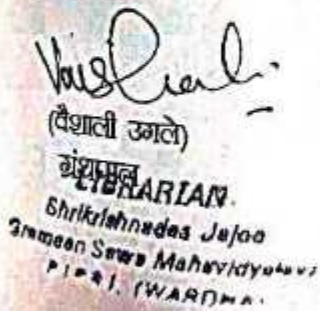 (वैशाली उगले)
ग्रंथपाल
LIBRARIAN
Shrikrishnadas Jajoo
Grameen Sewa Mahavidyalaya
PIPRI, (WARDHA.